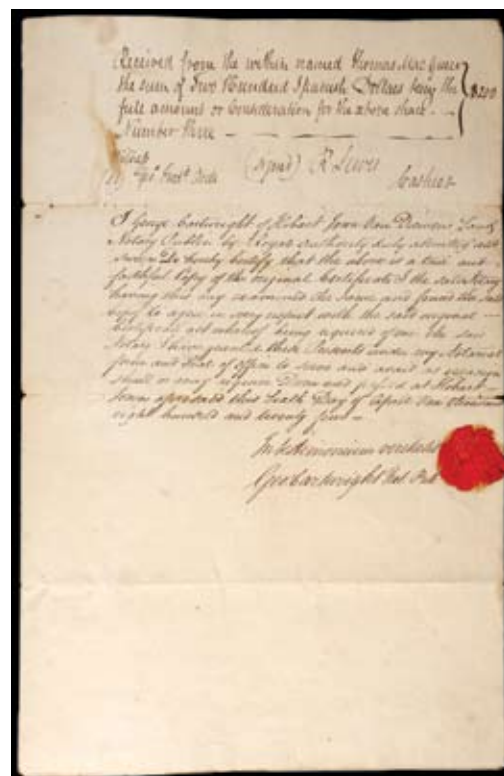 Received from the within named Thomas Mac Queen
the sum of Two Hundred Spanish Dollars being the
full amount or Consideration for the above share
Number Three
$200
Witness
(Signed) R Lewis
Cashier
I George Cartwright of Hobart Town Van Diemens Land
Notary Public by Royal Authority duly admitted and
sworn Do hereby Certify that the above is a true and
faithful Copy of the original Certificate I the said Notary
having this day examined the same and found the said
Copy to agree in every respect with the said original
Certificate act whereof being required of me the said
Notary I have granted these Presents under my Notarial
form and Seal of office to serve and avail as occasion
shall or may require Done and passed at Hobart
Town aforesaid this Day of April One thousand
eight hundred and twenty four
In testimonium veritatis
Geo Cartwright Not Pub